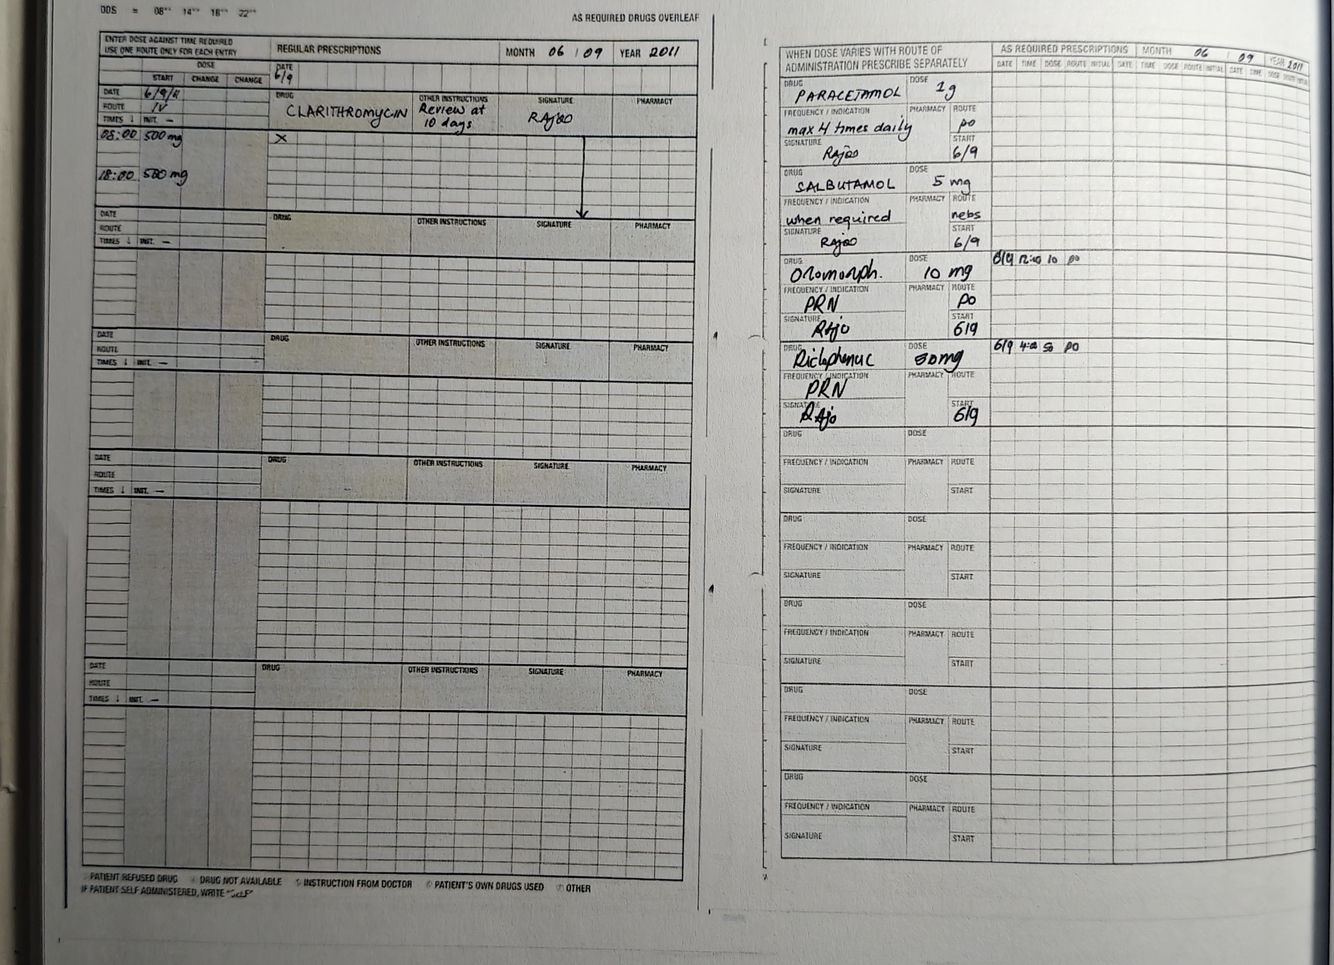 DDS = 08°° 14°° 18°° 22°°
AS REQUIRED DRUGS OVERLEAF
ENTER DOSE AGAINST TIME REQUIRED
USE ONE ROUTE ONLY FOR EACH ENTRY
REGULAR PRESCRIPTIONS MONTH 06 / 09 YEAR 2011
DOSE DATE
START CHANGE CHANGE 6/9
DATE 6/9/11 DRUG OTHER INSTRUCTIONS SIGNATURE PHARMACY
ROUTE IV CLARITHROMYCIN Review at RAjoo
TIMES ↓ INIT. — 10 days
08:00 500 mg X
18:00 500 mg
DATE DRUG OTHER INSTRUCTIONS SIGNATURE PHARMACY
ROUTE
TIMES ↓ INIT. —
DATE DRUG OTHER INSTRUCTIONS SIGNATURE PHARMACY
ROUTE
TIMES ↓ INIT. —
DATE DRUG OTHER INSTRUCTIONS SIGNATURE PHARMACY
ROUTE
TIMES ↓ INIT. —
DATE DRUG OTHER INSTRUCTIONS SIGNATURE PHARMACY
ROUTE
TIMES ↓ INIT. —
PATIENT REFUSED DRUG DRUG NOT AVAILABLE INSTRUCTION FROM DOCTOR PATIENT'S OWN DRUGS USED OTHER
IF PATIENT SELF ADMINISTERED, WRITE "SELF"
WHEN DOSE VARIES WITH ROUTE OF
ADMINISTRATION PRESCRIBE SEPARATELY
AS REQUIRED PRESCRIPTIONS MONTH 06 09 YEAR 2011
DATE TIME DOSE ROUTE INITIAL DATE TIME DOSE ROUTE INITIAL DATE TIME DOSE ROUTE INITIAL
DRUG DOSE
PARACETAMOL 1g
FREQUENCY / INDICATION PHARMACY ROUTE
max 4 times daily po
SIGNATURE START
Rajoo 6/9
DRUG DOSE
SALBUTAMOL 5 mg
FREQUENCY / INDICATION PHARMACY ROUTE
when required nebs
SIGNATURE START
Rajoo 6/9
DRUG DOSE 6/9 10 po
Oromorph. 10 mg
FREQUENCY / INDICATION PHARMACY ROUTE
PRN po
SIGNATURE START
RAjo 6/9
DRUG DOSE 6/9 50 PO
Diclophenac 50mg
FREQUENCY / INDICATION PHARMACY ROUTE
PRN
SIGNATURE START
RAjo 6/9
DRUG DOSE
FREQUENCY / INDICATION PHARMACY ROUTE
SIGNATURE START
DRUG DOSE
FREQUENCY / INDICATION PHARMACY ROUTE
SIGNATURE START
DRUG DOSE
FREQUENCY / INDICATION PHARMACY ROUTE
SIGNATURE START
DRUG DOSE
FREQUENCY / INDICATION PHARMACY ROUTE
SIGNATURE START
DRUG DOSE
FREQUENCY / INDICATION PHARMACY ROUTE
SIGNATURE START